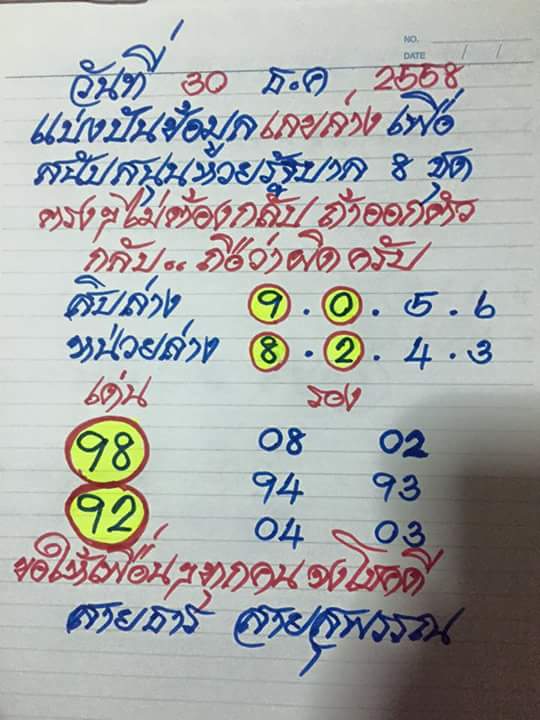 NO.
DATE / /
วันที่ 30 ธ.ค 2558
แบ่งปันข้อมูลเลขล่าง เพื่อ
สนับสนุนหวยรัฐบาล 8 ชุด
ตรงๆไม่ต้องกลับ ถ้าออกตัว
กลับ.. ถือว่าผิด ครับ
สิบล่าง 9 . 0 . 5 . 6
หน่วยล่าง 8 . 2 . 4 . 3
เด่น รอง
98 08 02
92 94 93
04 03
ขอให้เพื่อนๆทุกคน จงโชคดี
สายธาร สายสุพรรณ